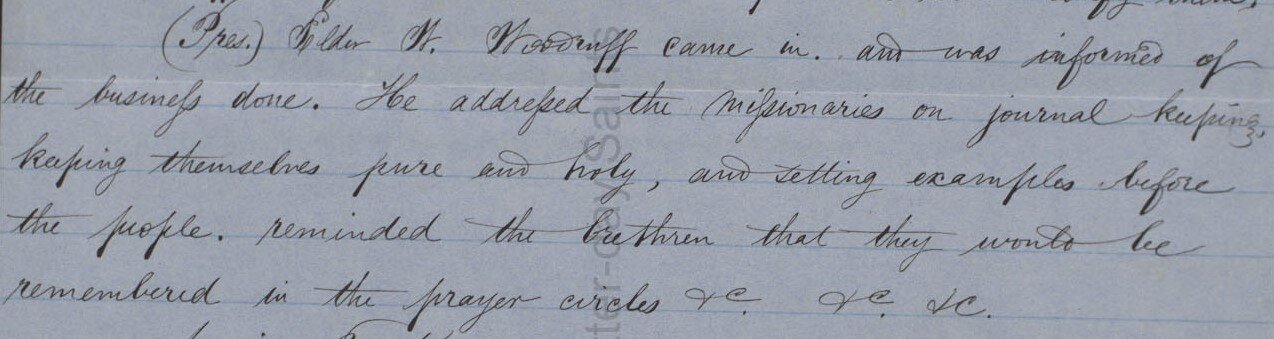 (Pres.) Elder W. Woodruff came in. and was informed of
the business done. He addressed the missionaries on journal keeping,
keeping themselves pure and holy, and setting examples before
the people. reminded the brethren that they would be
remembered in the prayer circles &c. &c. &c.